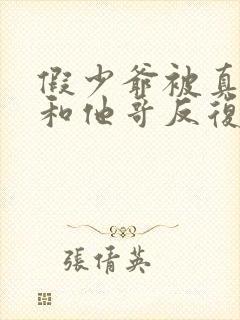 假少爺被真
和他哥反復
張倩英